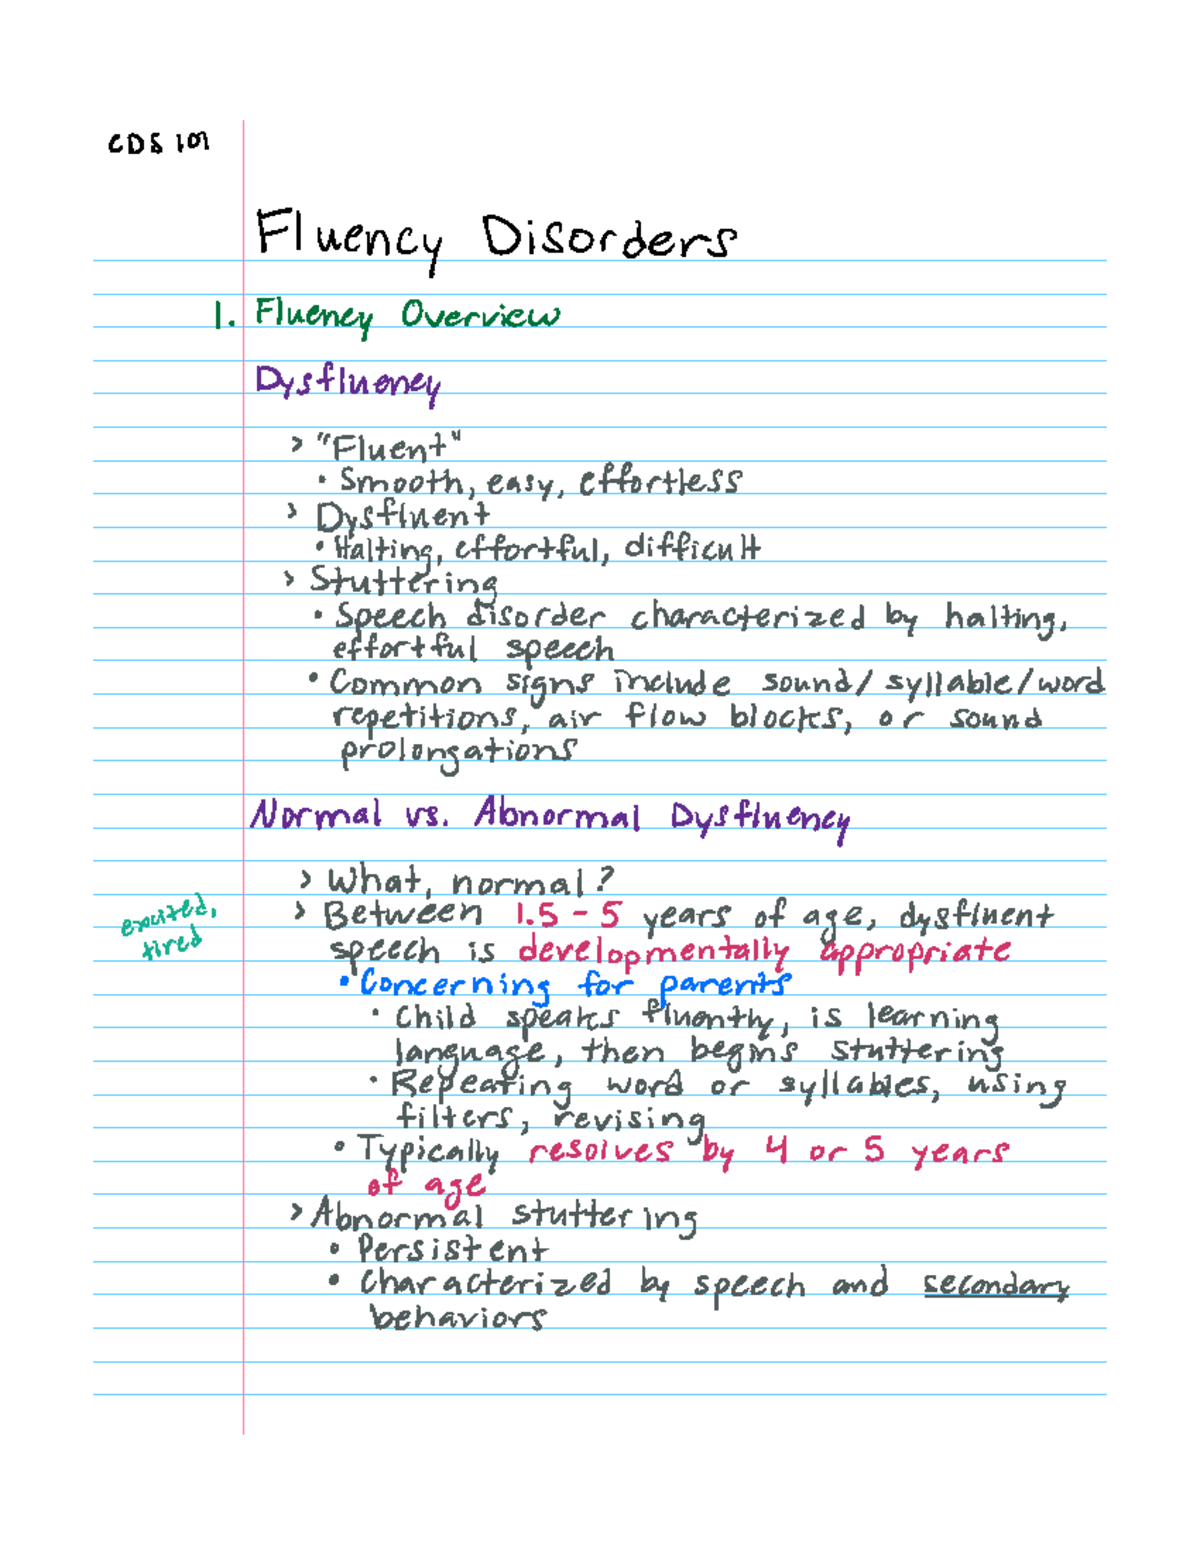 CDS 101
Fluency Disorders
1. Fluency Overview
Dysfluency
> "Fluent"
• Smooth, easy, effortless
> Dysfluent
• Halting, effortful, difficult
> Stuttering
• Speech disorder characterized by halting,
effortful speech
• Common signs include sound/syllable/word
repetitions, air flow blocks, or sound
prolongations
Normal vs. Abnormal Dysfluency
> What, normal?
excited,
tired
> Between 1.5 - 5 years of age, dysfluent
speech is developmentally appropriate
• Concerning for parents
• Child speaks fluently, is learning
language, then begins stuttering
• Repeating word or syllables, using
filters, revising
• Typically resolves by 4 or 5 years
of age
> Abnormal stuttering
• Persistent
• Characterized by speech and secondary
behaviors